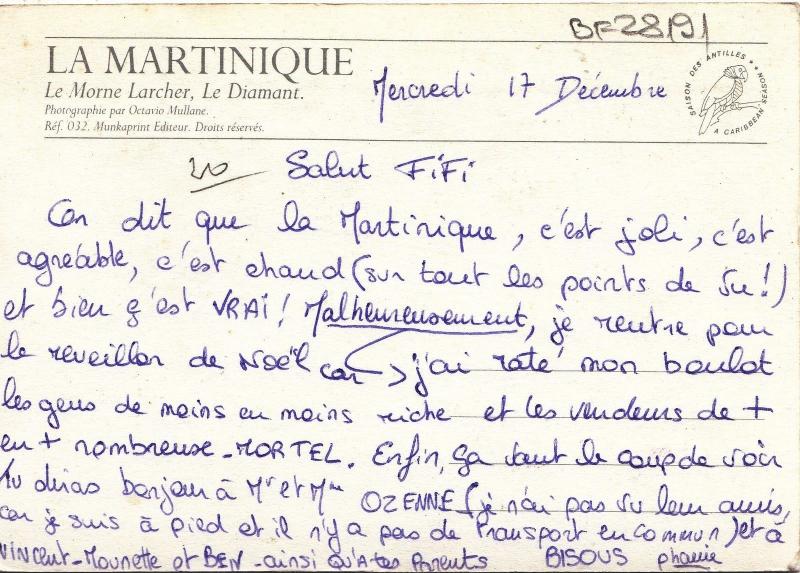 BF28191
LA MARTINIQUE
Le Morne Larcher, Le Diamant.
Photographie par Octavio Mullane.
Réf. 032. Munkaprint Editeur. Droits réservés.
Mercredi 17 Décembre
SAISON DES ANTILLES
A CARIBBEAN SEASON
Salut FiFi
On dit que la Martinique, c'est joli, c'est
agréable, c'est chaud (sur tout les points de vu!)
et bien ç'est VRAI! Malheureusement, je rentre pour
le reveillon de Noël car -> j'ai raté mon boulot
les gens de moins en moins riche et les vendeurs de +
en + nombreuse - MORTEL. Enfin, ça vaut le coup de voir
Tu diras bonjour à Mr et Mme OZENNE (je n'ai pas vu leur amis,
car je suis à pied et il n'y a pas de transport en commun) et à
VINCENT - Mounette et BEN - ainsi QU'A tes Parents BISOUS